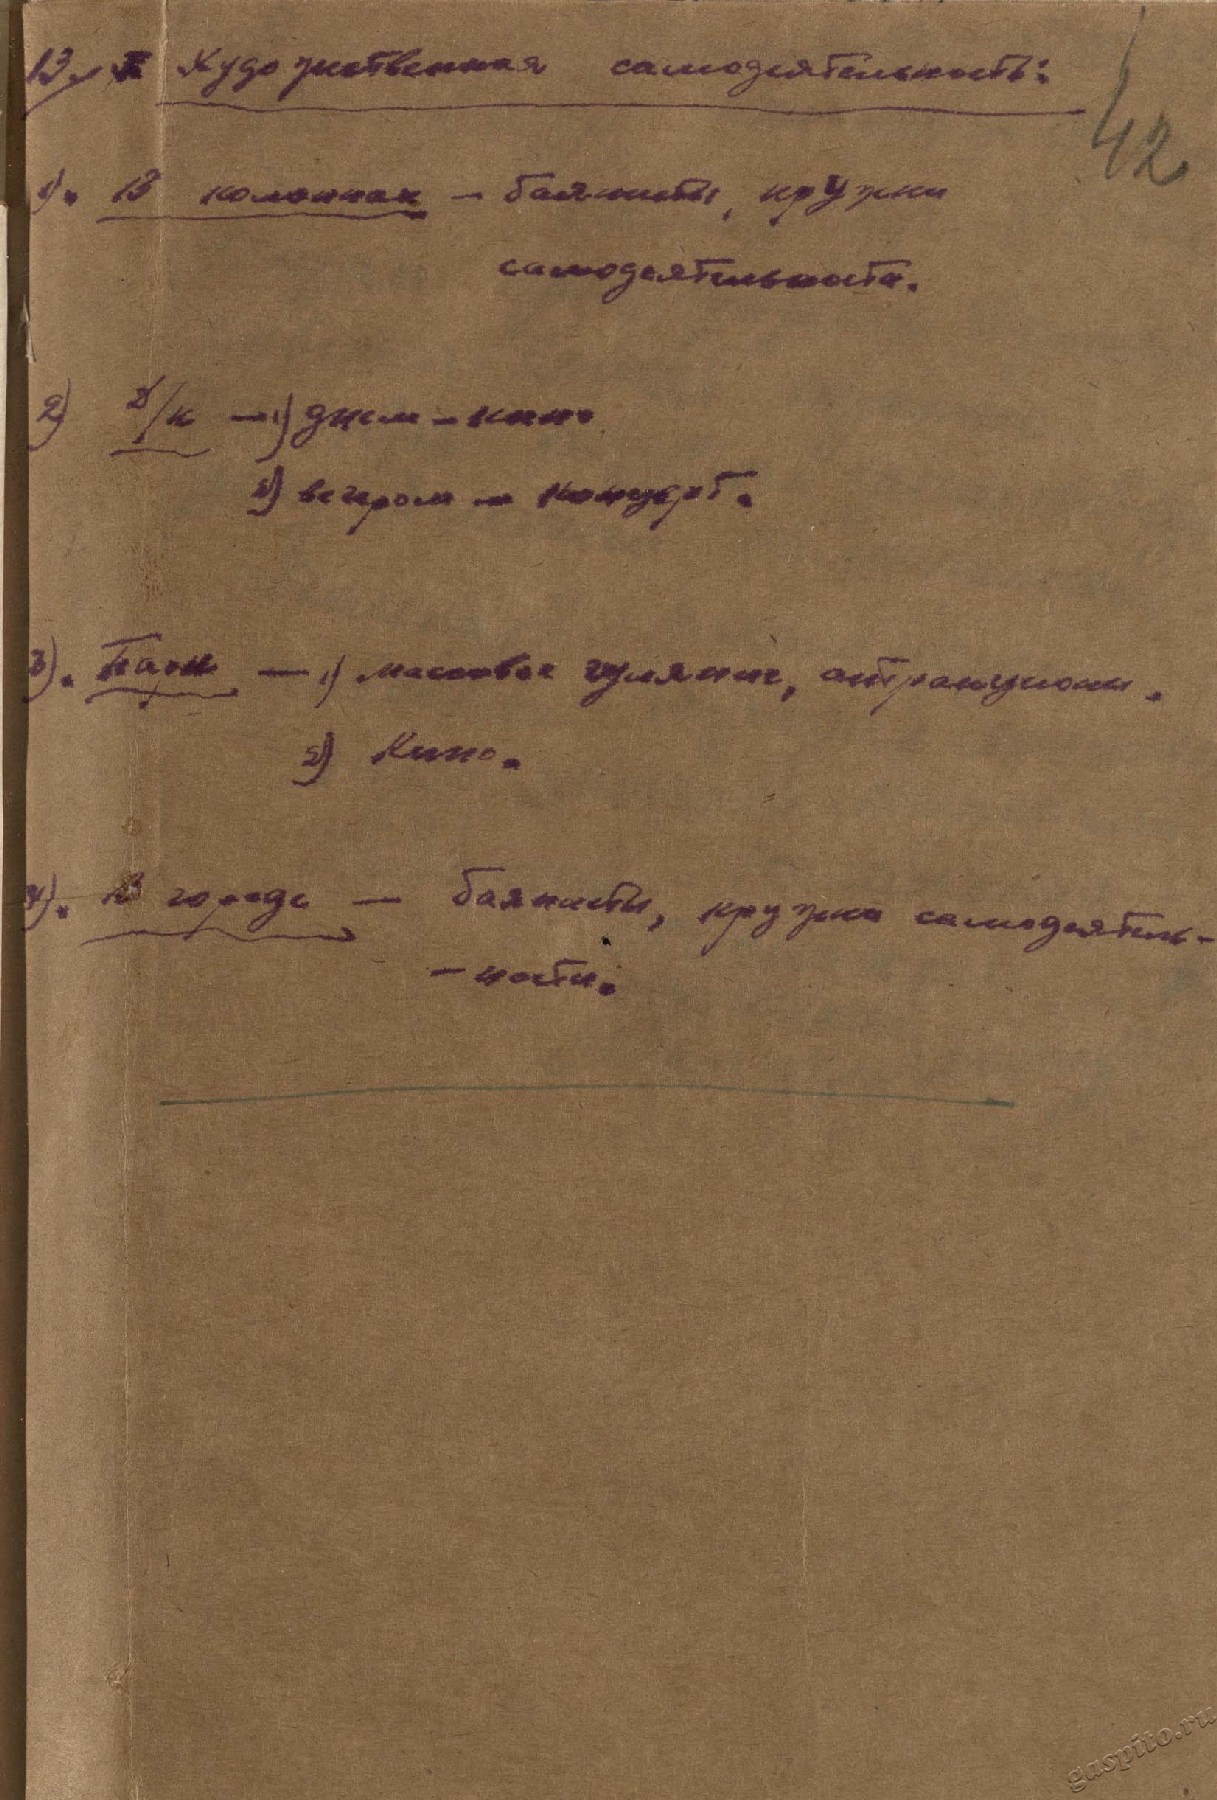 13/ Художественная самодеятельность:
42
1). В колоннах – баянисты, кружки
самодеятельности.
2) д/к – 1) днем – кино
2) вечером – концерт.
3). Парк – 1) массовое гуляние, аттракционы.
2) Кино.
4). В городе – баянисты, кружки самодеятель-
- ности.
gaspito.ru